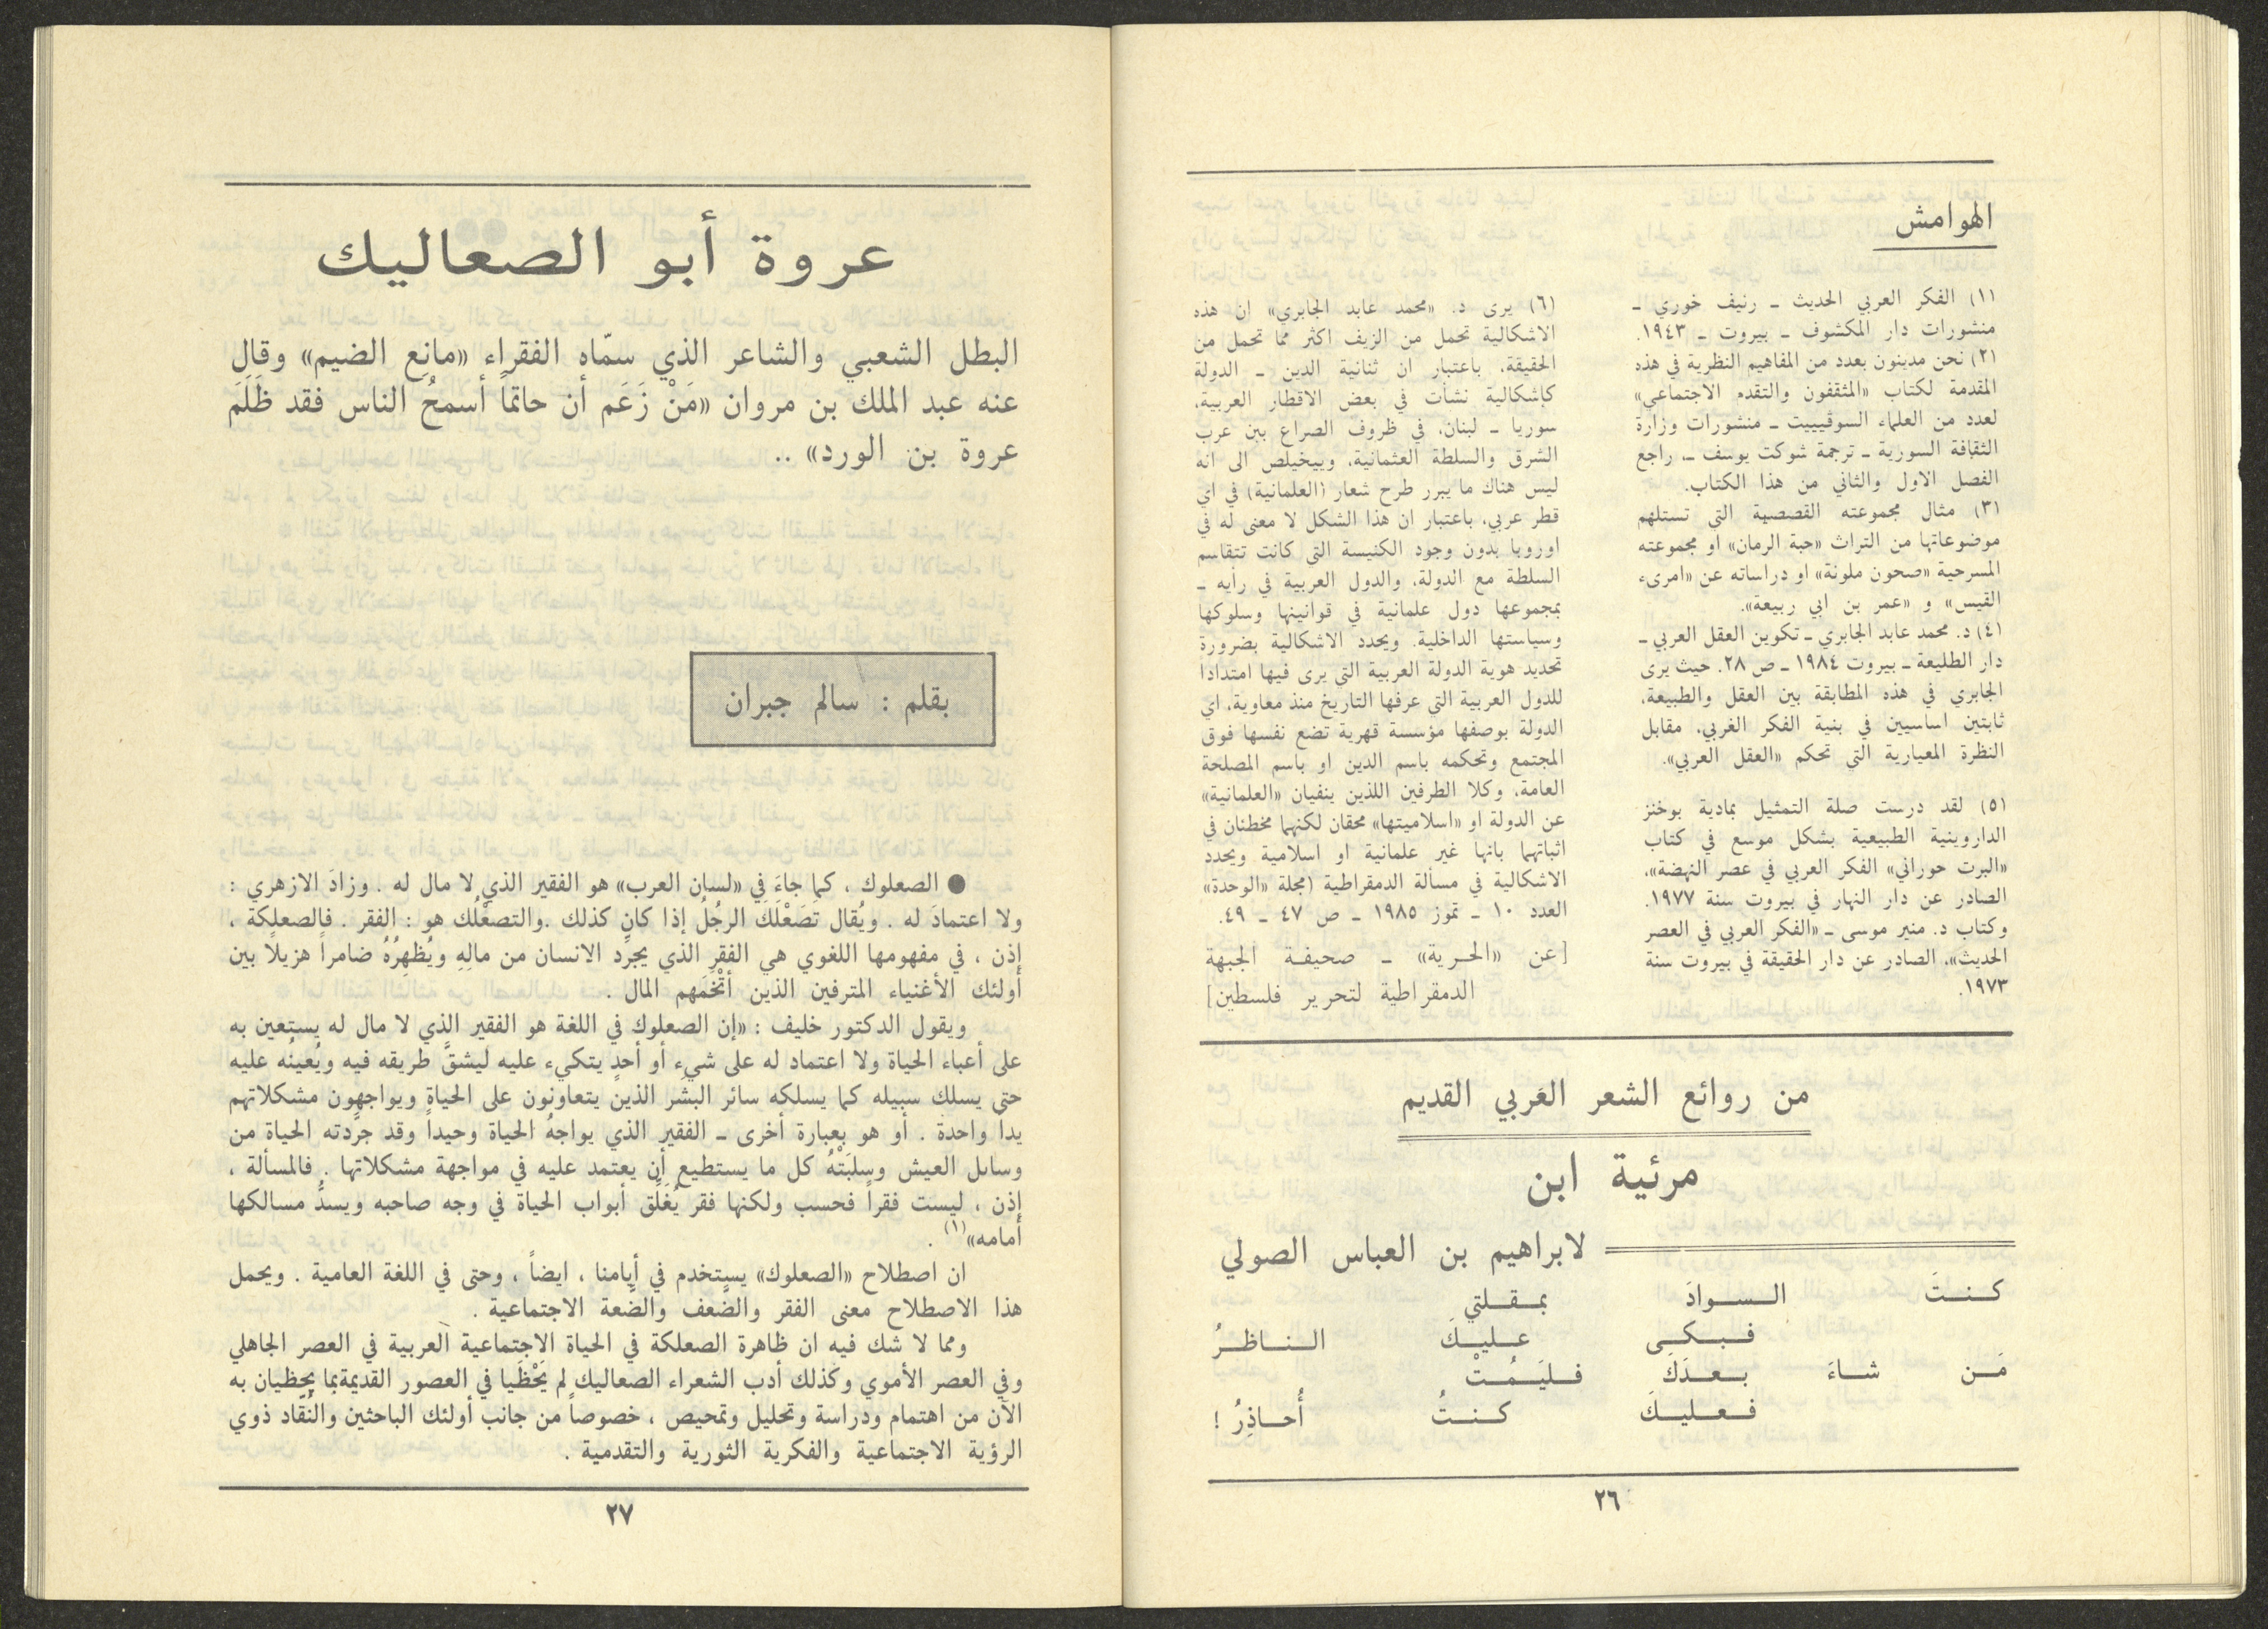 الهوامش
(١) الفكر العربي الحديث ـ رئيف خوري ـ
منشورات دار المكشوف ـ بيروت ـ ١٩٤٣.
(٢) نحن مدينون بعدد من المفاهيم النظرية في هذه
المقدمة لكتاب «المثقفون والتقدم الاجتماعي»
لعدد من العلماء السوفييت ـ منشورات وزارة
الثقافة السورية ـ ترجمة شوكت يوسف ـ. راجع
الفصل الاول والثاني من هذا الكتاب.
(٣) مثال مجموعته القصصية التي تستلهم
موضوعاتها من التراث «حبة الرمان» او مجموعته
المسرحية «صحون ملونة» او دراساته عن «امرىء
القيس» و «عمر بن ابي ربيعة».
(٤) د. محمد عابد الجابري ـ تكوين العقل العربي ـ
دار الطليعة ـ بيروت ١٩٨٤ ـ ص ٢٨. حيث يرى
الجابري في هذه المطابقة بين العقل والطبيعة،
ثابتين اساسيين في بنية الفكر الغربي، مقابل
النظرة المعيارية التي تحكم «العقل العربي».
(٥) لقد درست صلة التمثيل بمادية بوخنز
الداروينية الطبيعية بشكل موسع في كتاب
«البرت حوراني» الفكر العربي في عصر النهضة»،
الصادر عن دار النهار في بيروت سنة ١٩٧٧.
وكتاب د. منير موسى ـ «الفكر العربي في العصر
الحديث»، الصادر عن دار الحقيقة في بيروت سنة
١٩٧٣.
(٦) يرى د. «محمد عابد الجابري» ان هذه
الاشكالية تحمل من الزيف اكثر مما تحمل من
الحقيقة، باعتبار ان ثنائية الدين ـ الدولة
كإشكالية نشأت في بعض الاقطار العربية،
سوريا ـ لبنان، في ظروف الصراع بين عرب
الشرق والسلطة العثمانية، وبيخيلص الى انه
ليس هناك ما يبرر طرح شعار (العلمانية) في اي
قطر عربي، باعتبار ان هذا الشكل لا معنى له في
اوروبا بدون وجود الكنيسة التي كانت تتقاسم
السلطة مع الدولة، والدول العربية في رأيه ـ
بمجموعها دول علمانية في قوانينها وسلوكها
وسياستها الداخلية. ويحدد الاشكالية بضرورة
تحديد هوية الدولة العربية التي يرى فيها امتدادا
للدول العربية التي عرفها التاريخ منذ معاوية، اي
الدولة بوصفها مؤسسة قهرية تضع نفسها فوق
المجتمع وتحكمه باسم الدين او باسم المصلحة
العامة، وكلا الطرفين اللذين ينفيان «العلمانية»
عن الدولة او «اسلاميتها» محقان لكنهما مخطئان في
اثباتهما بانها غير علمانية او اسلامية ويحدد
الاشكالية في مسألة الدمقراطية (مجلة «الوحدة»
العدد ١٠ ـ تموز ١٩٨٥ ـ ص ٤٧ ـ ٤٩.
[عن «الحرية» ـ صحيفة الجبهة
الدمقراطية لتحرير فلسطين]
من روائع الشعر العَربي القديم
مرئية ابن
لابراهيم بن العباس الصولي
كنتَ السوادَ بمقلتي
فبكى عليكَ الناظرُ
مَن شاءَ بعدَكَ فليَمُتْ
فعليكَ كنتُ أُحاذِرُ !
٢٦
عروة أبو الصعاليك
البطل الشعبي والشاعر الذي سمّاه الفقراء «مانِع الضيم» وقال
عنه عبد الملك بن مروان «مَنْ زَعَم أن حاتماً أسمحُ الناس فقد ظَلَمَ
عروة بن الورد» ..
بقلم : سالم جبران
● الصعلوك ، كما جاءَ في «لسان العرب» هو الفقير الذي لا مال له . وزادَ الازهري :
ولا اعتمادَ له . ويُقال تَصَعْلَكَ الرجُلُ إذا كان كذلك .والتصعْلُك هو : الفقر . فالصعلكة ،
إذن ، في مفهومها اللغوي هي الفقر الذي يجرّد الانسان من مالِهِ ويُظهِرُهُ ضامراً هزيلاً بين
أولئك الأغنياء المترفين الذين أتْخَمَهم المال .
ويقول الدكتور خليف : «إن الصعلوك في اللغة هو الفقير الذي لا مال له يستعين به
على أعباء الحياة ولا اعتماد له على شيء أو أحدٍ يتكيء عليه ليشقَّ طريقه فيه ويُعينُه عليه
حتى يسلك سبيله كما يسلكه سائر البشَر الذين يتعاونُون على الحياة ويواجهون مشكلاتهم
يداً واحدة . أو هو بعبارة أخرى ـ الفقير الذي يواجهُ الحياة وحيداً وقد جرّدته الحياة من
وسائل العيش وسلبَتْهُ كل ما يستطيع أن يعتمد عليه في مواجهة مشكلاتها . فالمسألة ،
إذن ، ليست فقراً فحسب ولكنها فقر يُغَلِّق أبواب الحياة في وجه صاحبه ويسدُّ مسالكها
أمامه»(١) .
ان اصطلاح «الصعلوك» يستخدم في أيامنا ، ايضاً ، وحتى في اللغة العامية . ويحمل
هذا الاصطلاح معنى الفقر والضّعف والضّعة الاجتماعية .
ومما لا شك فيه ان ظاهرة الصعلكة في الحياة الاجتماعية العربية في العصر الجاهلي
وفي العصر الأموي وكذلك أدب الشعراء الصعاليك لم يَحْظَيا في العصور القديمة بما يحظيان به
الآن من اهتمام ودراسة وتحليل وتمحيص ، خصوصاً من جانب أولئك الباحثين والنُقّاد ذوي
الرؤية الاجتماعية والفكرية الثورية والتقدمية .
٢٧